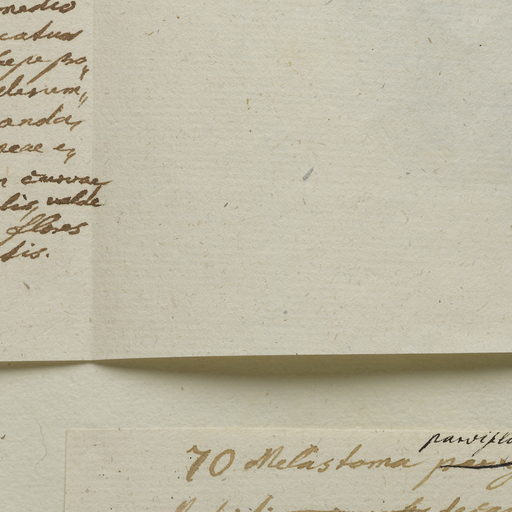 medio
catum
sepe pro„
derum„
anda,
aceae e„
n curvae
lis, valde
flores
tis.
parvifl
70 Melastoma